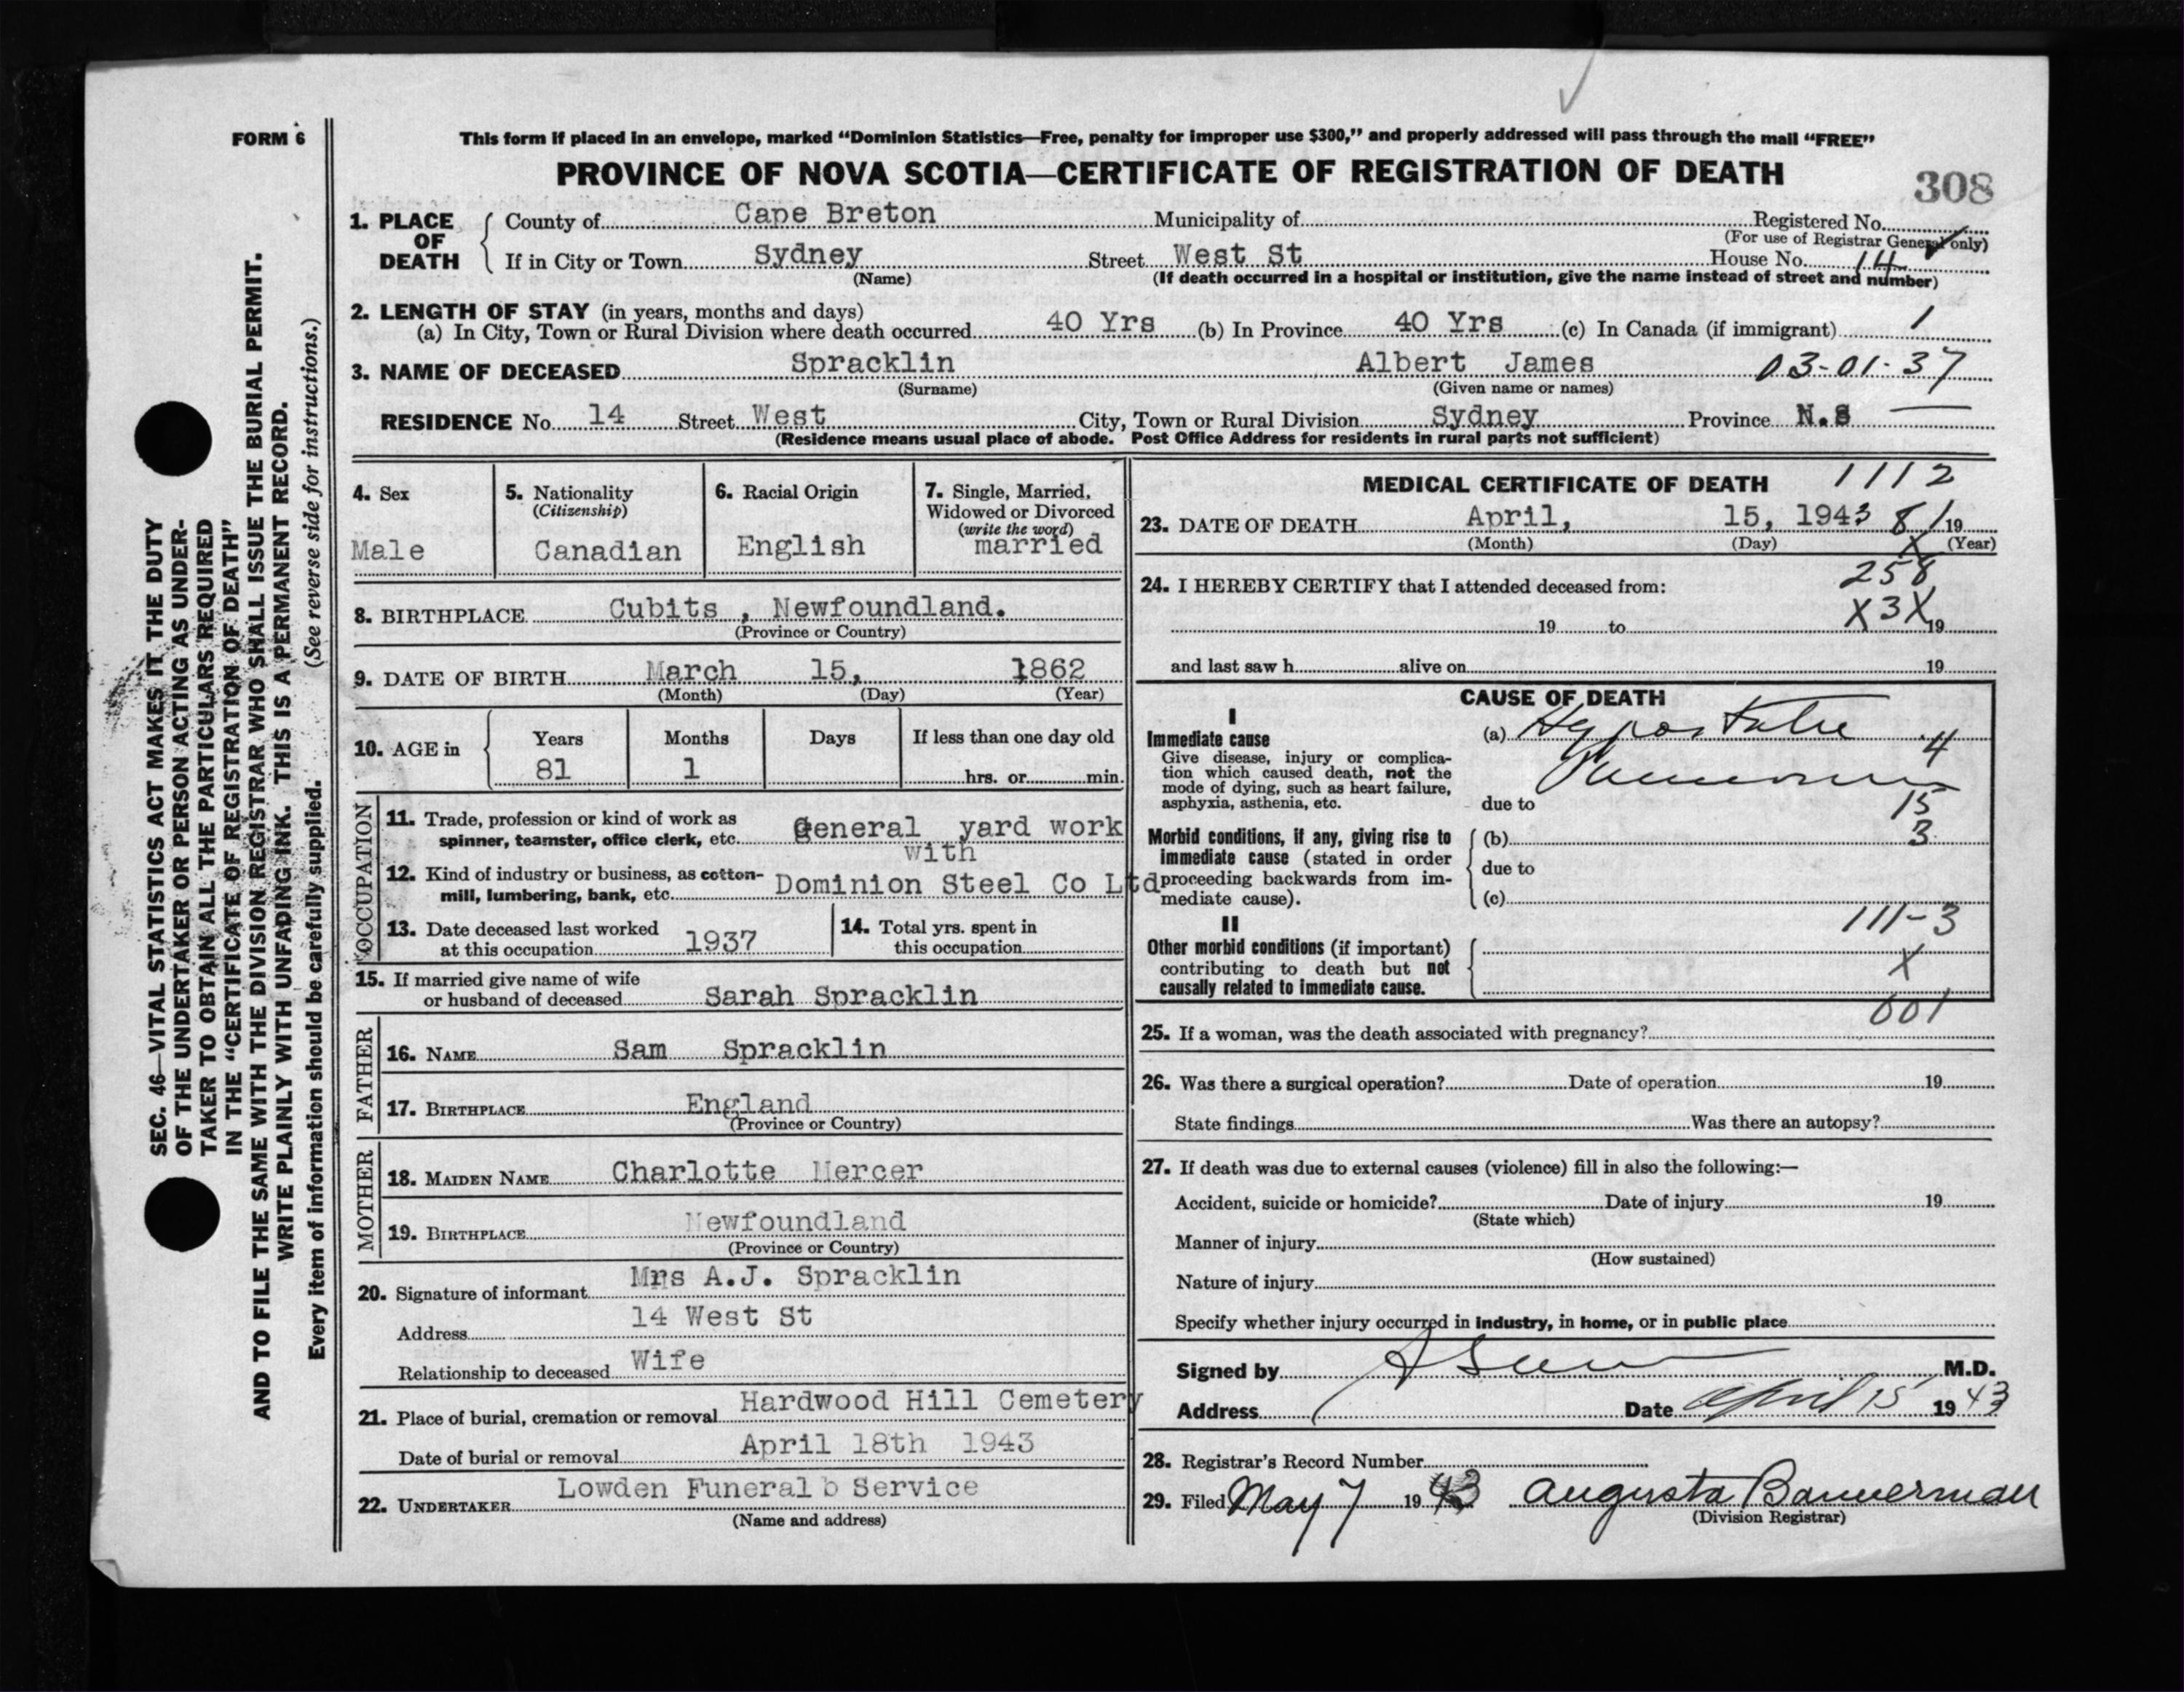 FORM 6
This form if placed in an envelope, marked “Dominion Statistics—Free, penalty for improper use $300,” and properly addressed will pass through the mail “FREE”
PROVINCE OF NOVA SCOTIA—CERTIFICATE OF REGISTRATION OF DEATH
308
1. PLACE OF DEATH
County of Cape Breton Municipality of Registered No.
(For use of Registrar General only)
If in City or Town Sydney Street West St House No. 14
(Name) (If death occurred in a hospital or institution, give the name instead of street and number)
2. LENGTH OF STAY (in years, months and days)
(a) In City, Town or Rural Division where death occurred 40 Yrs (b) In Province 40 Yrs (c) In Canada (if immigrant) 1
3. NAME OF DECEASED Spracklin Albert James 03-01-37
(Surname) (Given name or names)
RESIDENCE No. 14 Street West City, Town or Rural Division Sydney Province N.S
(Residence means usual place of abode. Post Office Address for residents in rural parts not sufficient)
4. Sex
Male
5. Nationality
(Citizenship)
Canadian
6. Racial Origin
English
7. Single, Married,
Widowed or Divorced
(write the word)
married
8. BIRTHPLACE Cubits , Newfoundland.
(Province or Country)
9. DATE OF BIRTH March 15, 1862
(Month) (Day) (Year)
10. AGE in
Years Months Days If less than one day old
81 1 hrs. or min.
OCCUPATION
11. Trade, profession or kind of work as
spinner, teamster, office clerk, etc. General yard work
with
12. Kind of industry or business, as cotton-
mill, lumbering, bank, etc. Dominion Steel Co Ltd
13. Date deceased last worked
at this occupation 1937
14. Total yrs. spent in
this occupation
15. If married give name of wife
or husband of deceased Sarah Spracklin
FATHER
16. NAME Sam Spracklin
17. BIRTHPLACE England
(Province or Country)
MOTHER
18. MAIDEN NAME Charlotte Mercer
19. BIRTHPLACE Newfoundland
(Province or Country)
20. Signature of informant Mrs A.J. Spracklin
Address 14 West St
Relationship to deceased Wife
21. Place of burial, cremation or removal Hardwood Hill Cemetery
Date of burial or removal April 18th 1943
22. UNDERTAKER Lowden Funeral b Service
(Name and address)
MEDICAL CERTIFICATE OF DEATH 1112
23. DATE OF DEATH April, 15, 1943 81 19
(Month) (Day) (Year)
X
24. I HEREBY CERTIFY that I attended deceased from: 258
19 to X3X 19
and last saw h alive on 19
CAUSE OF DEATH
I
Immediate cause
Give disease, injury or complica-
tion which caused death, not the
mode of dying, such as heart failure,
asphyxia, asthenia, etc.
(a) Hypostatic 4
Pneumonia
due to 15
Morbid conditions, if any, giving rise to
immediate cause (stated in order
proceeding backwards from im-
mediate cause).
(b) 3
due to
(c)
111-3
II
Other morbid conditions (if important)
contributing to death but not
causally related to immediate cause.
X
001
25. If a woman, was the death associated with pregnancy?
26. Was there a surgical operation? Date of operation 19
State findings Was there an autopsy?
27. If death was due to external causes (violence) fill in also the following:—
Accident, suicide or homicide? Date of injury 19
(State which)
Manner of injury
(How sustained)
Nature of injury
Specify whether injury occurred in industry, in home, or in public place
Signed by M.D.
Address Date April 15 1943
28. Registrar's Record Number
29. Filed May 7 1943 Augusta Bannerman
(Division Registrar)
SEC. 46—VITAL STATISTICS ACT MAKES IT THE DUTY
OF THE UNDERTAKER OR PERSON ACTING AS UNDER-
TAKER TO OBTAIN ALL THE PARTICULARS REQUIRED
IN THE “CERTIFICATE OF REGISTRATION OF DEATH”
AND TO FILE THE SAME WITH THE DIVISION REGISTRAR WHO SHALL ISSUE THE BURIAL PERMIT.
WRITE PLAINLY WITH UNFADING INK. THIS IS A PERMANENT RECORD.
Every item of information should be carefully supplied. (See reverse side for instructions.)